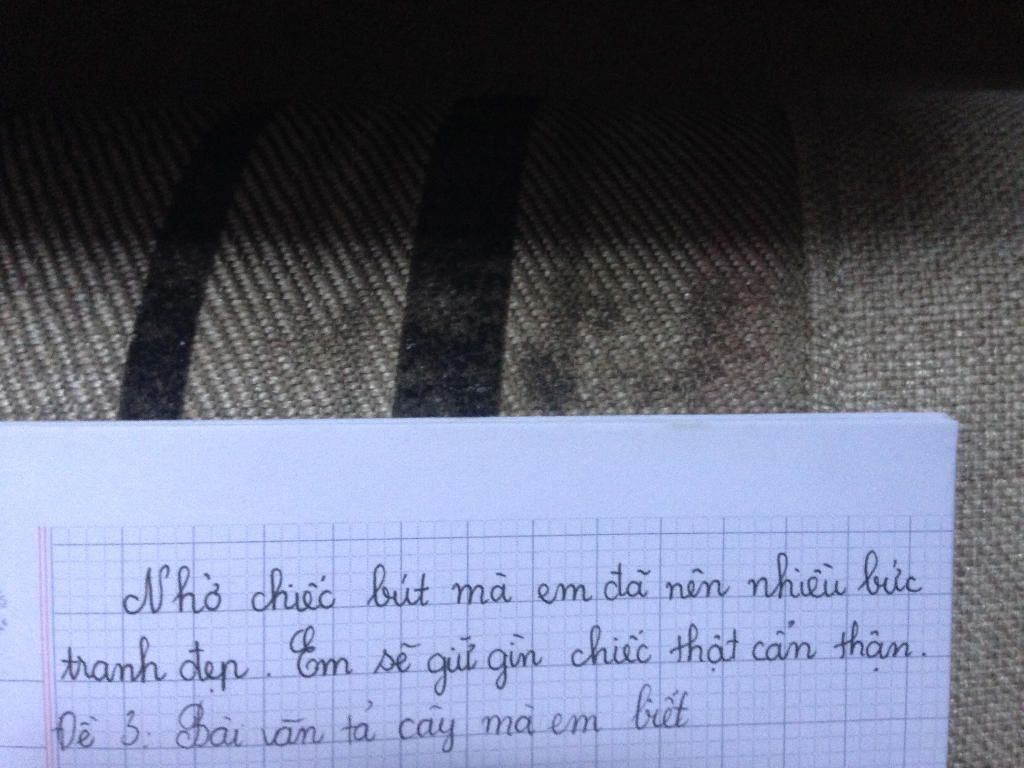 Nhờ chiếc bút mà em đã nên nhiều bức
tranh đẹp. Em sẽ giữ gìn chiếc thật cẩn thận.
Đề 3: Bài văn tả cây mà em biết